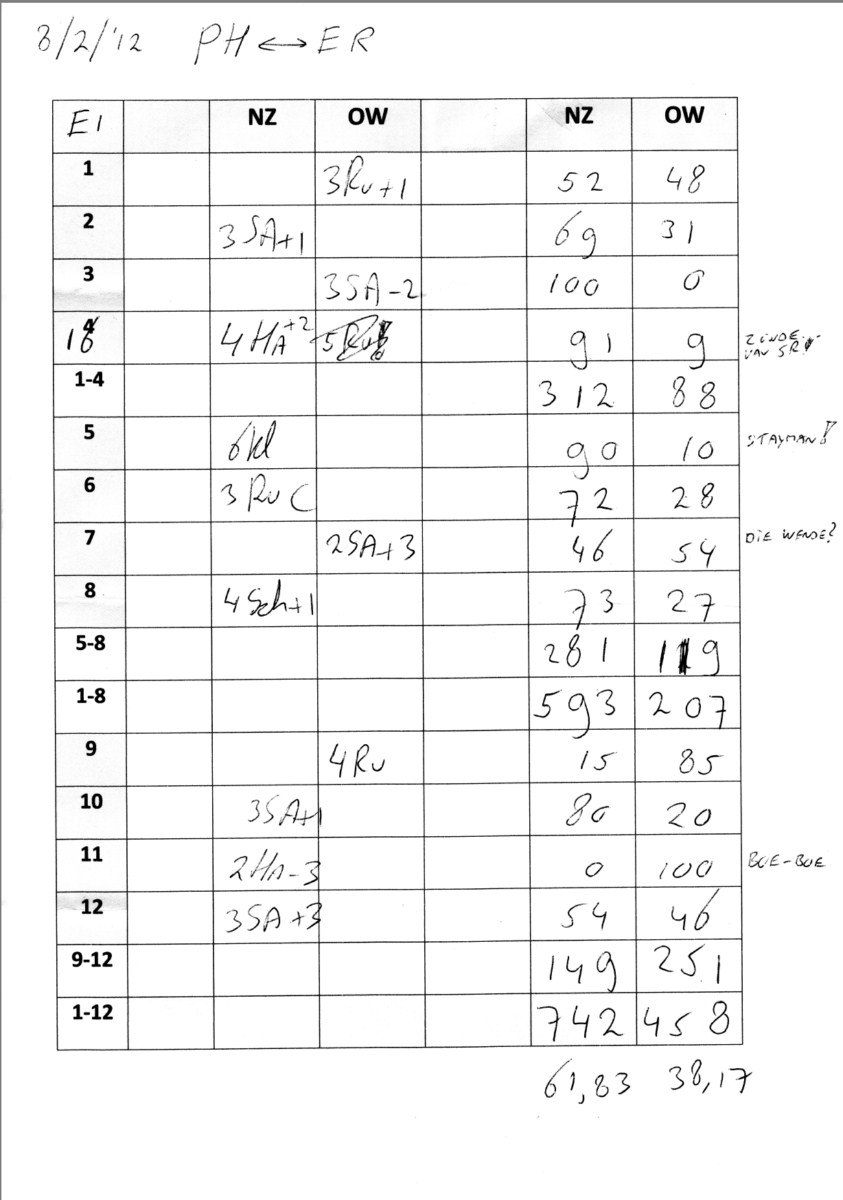 8/2/'12 PH ↔ ER
E1 NZ OW NZ OW
1 3Ru+1 52 48
2 3SA+1 69 31
3 3SA-2 100 0
16 4HA+2 91 9 ZONDE VAN SR!
1-4 312 88
5 6kl 90 10 STAYMAN!
6 3RuC 72 28
7 2SA+3 46 54 DIE WENDE?
8 4Sch+1 73 27
5-8 281 119
1-8 593 207
9 4Ru 15 85
10 3SA+1 80 20
11 2HA-3 0 100 BOE-BOE
12 3SA+3 54 46
9-12 149 251
1-12 742 458
61,83 38,17